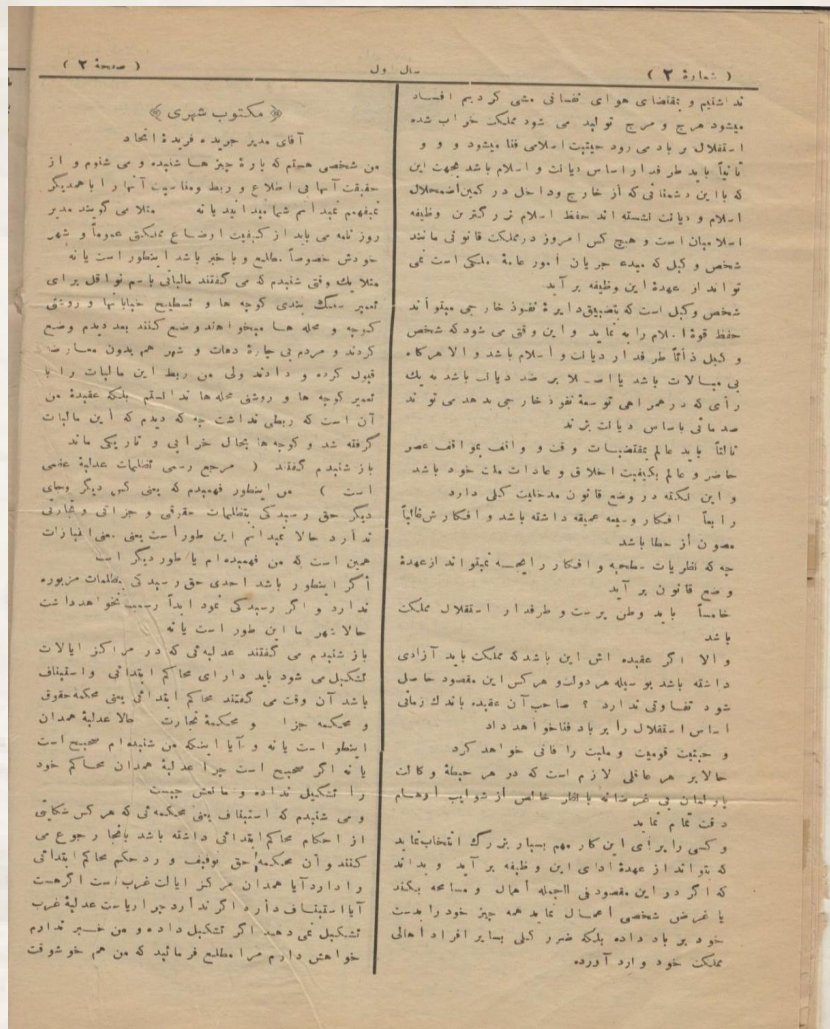 ( شمارهٔ ۲ )
سال اول
( صفحهٔ ۲ )
نداشتیم و بمقتضای هوای نفسانی مشی کردیم افساد
میشود هرج و مرج تولید می شود مملکت خراب شده
استقلال بر باد می رود حیثیت اسلامی فنا میشود و و و
ثانیاً باید طرفدار اساس دیانت و اسلام باشد بجهت این
که با این دشمنانی که از خارج و داخل در کمین اضمحلال
اسلام و دیانت نشسته اند حفظ اسلام بزرگترین وظیفه
اسلامیان است و هیچ کس امروز در مملکت قانونی مانند
شخص وکیل که مبدء جریان أمور عامهٔ ملکی است نمی
تواند از عهدهٔ این وظیفه بر آید
شخص وکیل است که بتضییق دایرهٔ نفوذ خارجی میتواند
حفظ قوهٔ اسلام را به نماید و این وقتی می شود که شخص
وکیل ذاتاً طرفدار دیانت و اسلام باشد و الا هرگاه
بی مبالات باشد یا اصلا بر ضد دیانت باشد به یک
رأی که در همراهی توسعهٔ نفوذ خارجی بدهد می تواند
صدماتی باساس دیانت بزند
ثالثاً باید عالم بمقتضیات وقت و واقف بمواقف عصر
حاضر و عالم بکیفیت اخلاق و عادات ملت خود باشد
و این نکته در وضع قانون مدخلیت کلی دارد
رابعاً افکار وسیعه عمیقه داشته باشد و افکارش غالباً
مصون از خطا باشد
چه که نظریات سطحیه و افکار رایحه نمیتواند از عهدهٔ
وضع قانون بر آید
خامساً باید وطن پرست و طرفدار استقلال مملکت
باشد
و الا اگر عقیده اش این باشد که مملکت باید آزادی
داشته باشد بوسیله هر دولت و هر کس این مقصود حاصل
شود تفاوتی ندارد ؟ صاحب آن عقیده باندک زمانی
اساس استقلال را بر باد فنا خواهد داد
و حیثیت قومیت و ملیت را فانی خواهد کرد
حالا بر هر عاقلی لازم است که در هر حیطهٔ وکالت
پارلمان بی غرضانه با نظر خالص از شوایب أوهام
دقت تمام نماید
و کسی را برای این کار مهم بسیار بزرگ انتخاب نماید
که بتواند از عهدهٔ ادای این وظیفه بر آید و بداند
که اگر در این مقصود فی الجمله أهمال و مسامحه بکند
یا غرض شخصی أعمال نماید همه چیز خود را بدست
خود بر باد داده بلکه ضرر کلی بسایر افراد أهالی
مملکت خود وارد آورده
﴿ مکتوب شهری ﴾
آقای مدیر جریده فریدهٔ اتحاد
من شخصی هستم که پارهٔ چیز ها شنیده و می شنوم و از
حقیقت آنها بی اطلاع و ربط و مناسبت آنها را با همدیگر
نمیفهمم نمیدانم شما میدانید یا نه مثلا می گویند مدیر
روز نامه می باید از کیفیت اوضاع مملکتش عموماً و شهر
خودش خصوصاً مطلع و با خبر باشد اینطور است یا نه
مثلا یک وقتی شنیدم که می گفتند مالیاتی باسم نواقل برای
تعمیر سنگ بندی کوچه ها و تسطیح خیابانها و روشنی
کوچه و محله ها میخواهند وضع کنند بعد دیدم وضع
کردند و مردم بی چارهٔ دهات و شهر هم بدون معارضه
قبول کرده و دادند ولی من ربط این مالیات را با
تعمیر کوچه ها و روشنی محله ها ندانستم بلکه عقیدهٔ من
آن است که ربطی نداشت چه که دیدم که أین مالیات
گرفته شد و کوچه ها بحال خرابی و تاریکی ماند
باز شنیدم گفتند ( مرجع رسمی تظلمات عدلیهٔ عظمی
است ) من اینطور فهمیدم که یعنی کس دیگر و جای
دیگر حق رسیدگی بتظلمات حقوقی و جزائی و تجارتی
ندارد حالا نمیدانم این طور أست یعنی معنی اعبارات
همین است که من فهمیده‌ام یا طور دیگر است
أگر اینطور باشد احدی حق رسیدگی بتظلمات مزبوره
ندارد و اگر رسیدگی نمود ابداً رسمیت نخواهد داشت
حالا شهر ما این طور است یا نه
باز شنیدم می گفتند عدلیه ئی که در مراکز ایالات
تشکیل می شود باید دارای محاکم ابتدائی و استیناف
باشد آن وقت می گفتند محاکم ابتدائی یعنی محکمه حقوق
و محکمه جزا و محکمهٔ تجارت حالا عدلیهٔ همدان
اینطور است یا نه و آیا اینکه من شنیده‌ام صحیح است
یا نه اگر صحیح است چرا عدلیهٔ همدان محاکم خود
را تشکیل نداده و مانعش چیست
و می شنیدم که استیناف یعنی محکمه ئی که هر کس شکایتی
از احکام محاکم ابتدائی داشته باشد بآنجا رجوع می
کنند و آن محکمه حق توقیف و رد حکم محاکم ابتدائی
را دارد آیا همدان مرکز ایالت غرب أست اگر هست
آیا استیناف دارد اگر ندارد چرا ریاست عدلیهٔ غرب
تشکیل نمی دهد اگر تشکیل داده و من خبر ندارم
خواهش دارم مرا مطلع فرمائید که من هم خوشوقت